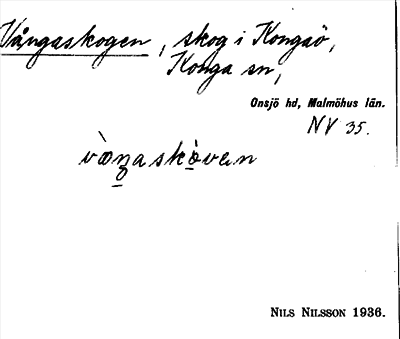 Vångaskogen, skog i Kongaö,
Konga sn,
Onsjö hd, Malmöhus län.
NV 35.
vàŋaskòven
NILS NILSSON 1936.